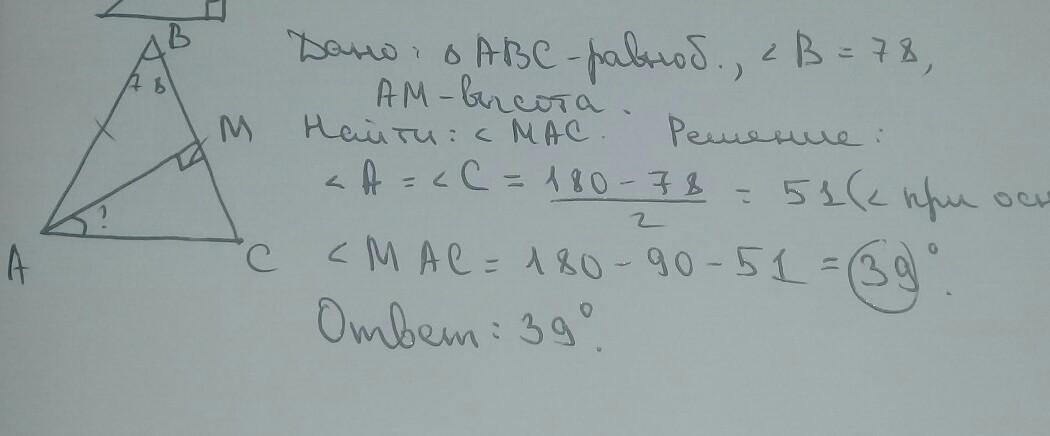 B
78
M
?
A
C
Дано: △ABC-равноб., <B = 78,
AM-высота.
Найти: <MAC. Решение:
<A = <C = 180-78/2 = 51(< при осн
<MAC = 180-90-51 = 39°.
Ответ: 39°.